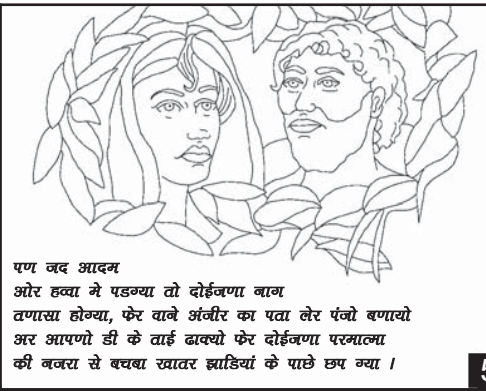 पण जद आदम
ओर हव्वा मे पडग्या तो दोईजणा नाग
तणासा होग्या, फेर वाने अंजीर का पता लेर पंजो बणायो
अर आपणो डी के ताई ढाक्यो फेर दोईजणा परमात्मा
की नजरा से बचबा खातर झाडियां के पाछे छप ग्या ।
5